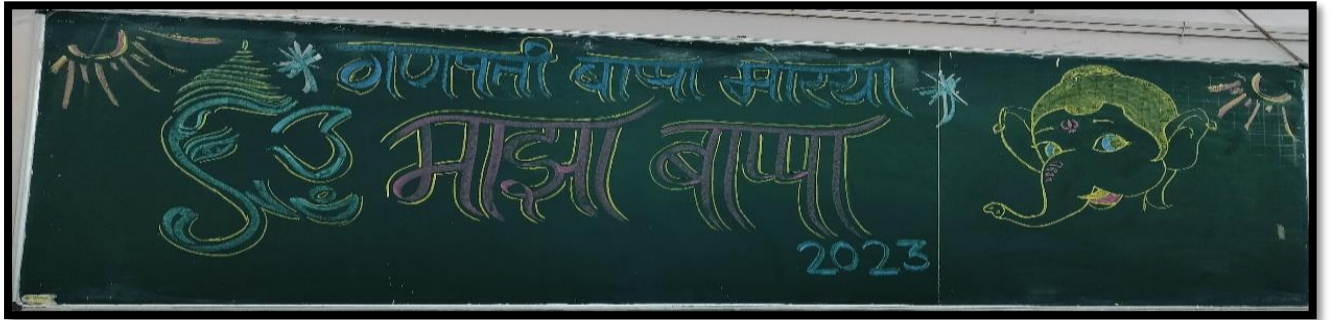 गणपती बाप्पा मोरया
माझा बाप्पा
2023